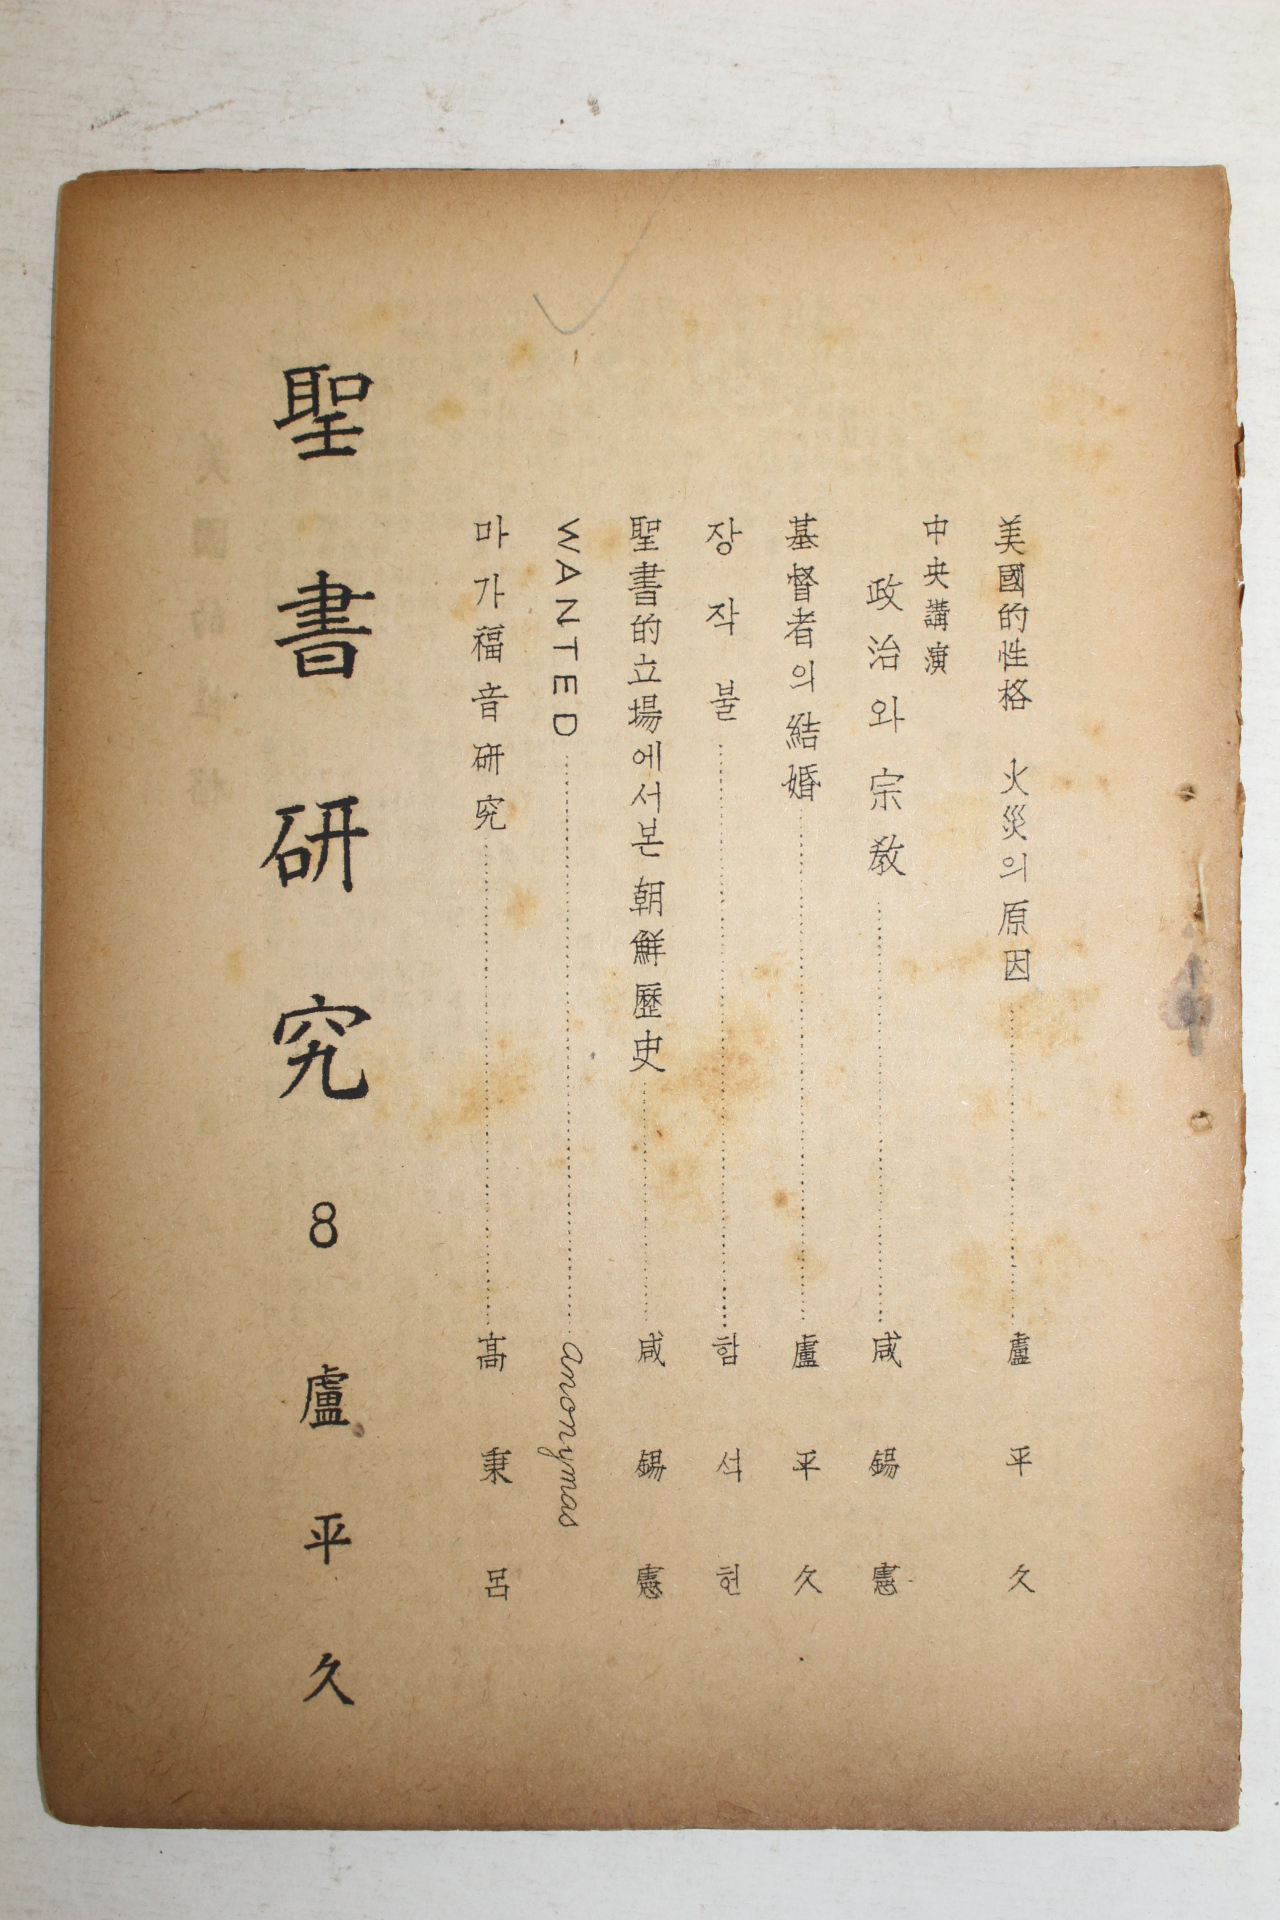 美國的性格 火災의原因 盧平久
中央講演
政治와宗敎 咸錫憲
基督者의結婚 盧平久
장작불 함석헌
聖書的立場에서본朝鮮歷史 咸錫憲
WANTED anonymas
마가福音研究 高秉呂
聖書研究 8 盧平久